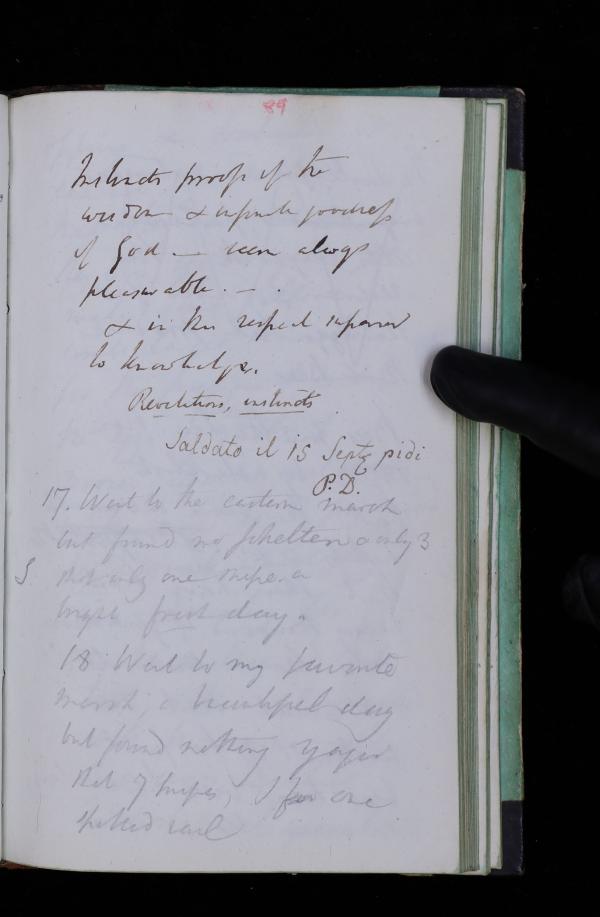 89
Instincts proofs of the
wisdom & infinite goodness
of God — seem always
pleasurable. — .
& in this respect superior
to knowledge.
Revelations, instincts.
Saldato il 15 Sept pidi
P.D.
17. Went to the eastern marsh
but found no & only 3
shot only one snipe. a
bright frost day.
18 Went to my favorite
marsh, a beautiful day
but found nothing
shot 7 snipes, I one
spotted rail